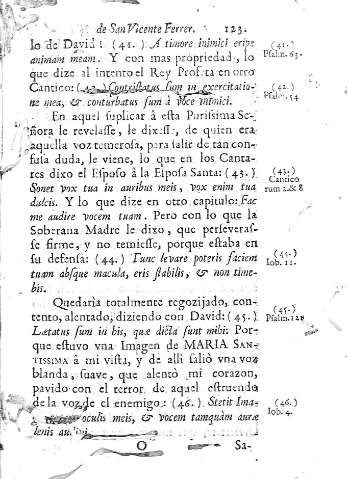 de San Vicente Ferrer. 123.
lo de David: (41.) A timore inimici eripe
animam meam. Y con mas propriedad, lo
que dize al intento el Rey Profeta en otro
Cantico: (42.) Contristatus sum in exercitatio-
ne mea, & conturbatus sum à voce inimici.
En aquel suplicar à esta Purissima Se-
ñora le revelasse, le dixesse, de quien era
aquella voz temerosa, para salir de tan con-
fusa duda, le viene, lo que en los Canta-
res dixo el Esposo à la Esposa Santa: (43.)
Sonet vox tua in auribus meis, vox enim tua
dulcis. Y lo que dize en otro capitulo: Fac
me audire vocem tuam. Pero con lo que la
Soberana Madre le dixo, que perseveras-
se firme, y no temiesse, porque estaba en
su defensa: (44.) Tunc levare poteris faciem
tuam absque macula, eris stabilis, & non time-
bis.
Quedaria totalmente regozijado, con-
tento, alentado, diziendo con David: (45.)
Lætatus sum in his, quæ dicta sunt mihi: Por-
que estuvo vna Imagen de MARIA SAN-
TISSIMA à mi vista, y de alli saliò vna voz
blanda, suave, que alentò mi corazon,
pavido con el terror de aquel estruendo
de la voz de el enemigo: (46.) Stetit Ima-
oculis meis, & vocem tamquàm auræ
lenis
O Sa-
(41.)
Psalm. 63.
(42.)
Psalm. 54
(43.)
Cantico
rum 2. & 8
(45.)
Iob. 11.
(45.)
Psalm. 121
(46.)
Iob. 4.